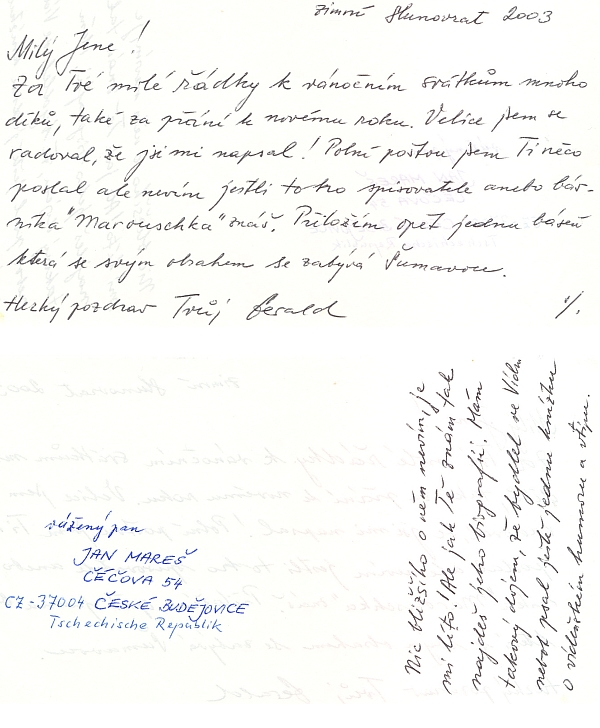 zimní slunovrat 2003
Milý Jene!
Za Tvé milé řádky k vánočním svátkům mnoho
díků, také za přání k novému roku. Velice jsem se
radoval, že jsi mi napsal! Polní poštou jsem Ti něco
poslal ale nevím jestli toho spisovatele anebo bás-
níka "Marouschka" znáš. Přiložím opět jednu báseň
která se svým obsahem se zabývá Šumavou.
Hezký pozdrav Tvůj Gerald
·/.
Nic bližšího o něm nevím, je
mi líto! Ale jak Tě znám tak
najdeš jeho biografii. Mám
takový dojem, že bydlel ve Vídni
neboť psal ještě jednu knížku
o vídeňském humoru a vtipu.
vážený pan
JAN MAREŠ
ČÉČOVA 54
CZ-37004 ČESKÉ BUDĚJOVICE
Tschechische Republik